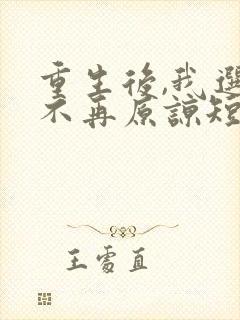 重生後,我選
不再原諒短
王雪直